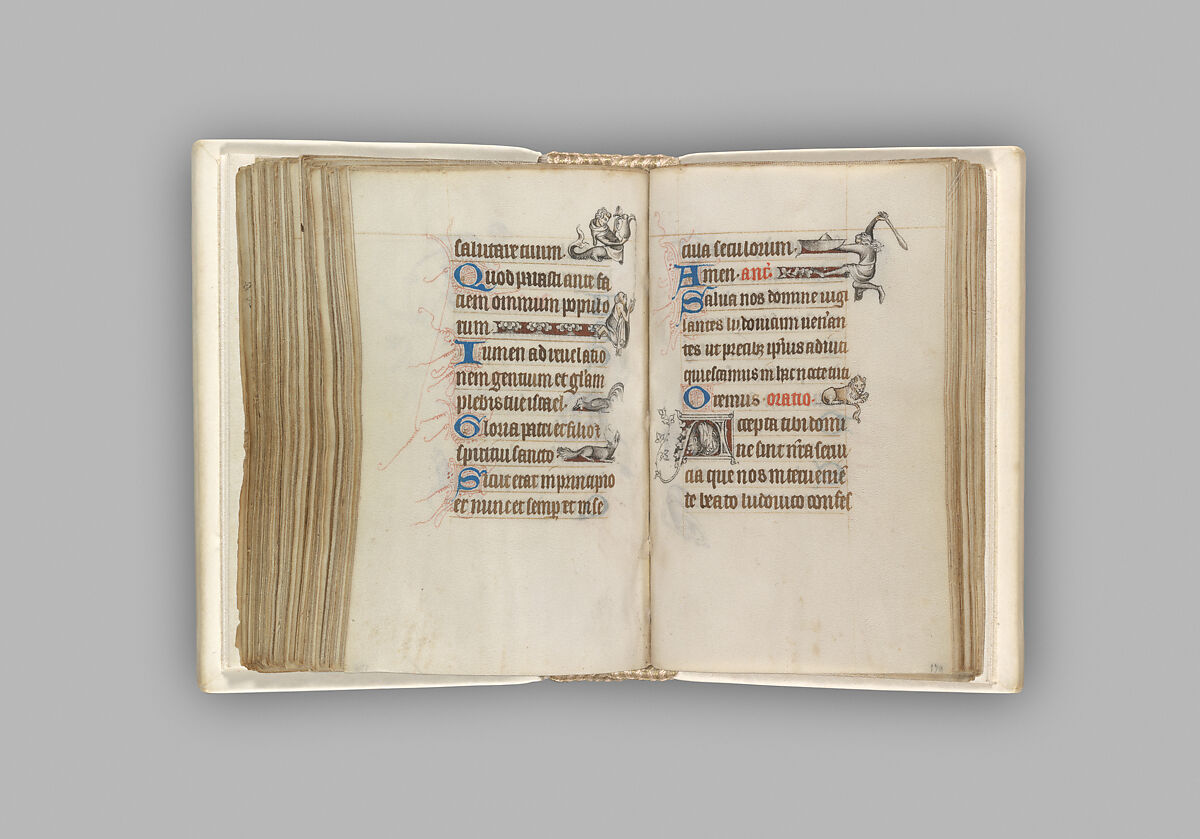 salutare tuum
Quod parasti ante fa
ciem omnium populo
rum
Lumen ad revelatio
nem gentium et gl'am
plebis tue israel.
Gloria patri et filio et
spiritui sancto
Sicut erat in principio
et nunc et semp et in se
cula seculorum.
Amen. ant'.
Salva nos domine vigi
lantes ludovicum veneran
tes ut precibz ip'ius adiuti
quiescamus in hac nocte tuti
Oremus. oratio.
Accepta tibi domi
ne sint n'ra servi
cia que nos in tercuenie
te beato ludovico confes